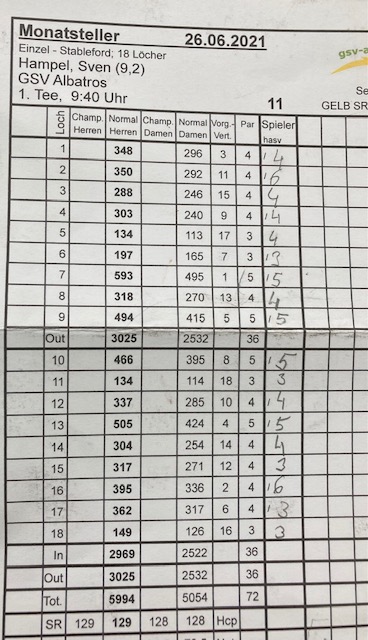 Monatsteller 26.06.2021
Einzel - Stableford; 18 Löcher
gsv-a
Hampel, Sven (9,2)
GSV Albatros
1. Tee, 9:40 Uhr 11 GELB SR
Loch Champ. Herren Normal Herren Champ. Damen Normal Damen Vorg.-Vert. Par Spieler hasv
1 348 296 3 4 ' 4
2 350 292 11 4 ' 6
3 288 246 15 4 4
4 303 240 9 4 ' 4
5 134 113 17 3 4
6 197 165 7 3 ' 3
7 593 495 1 / 5 ' 5
8 318 270 13 4 4
9 494 415 5 5 ' 5
Out 3025 2532 36
10 466 395 8 5 ' 5
11 134 114 18 3 3
12 337 285 10 4 ' 4
13 505 424 4 5 ' 5
14 304 254 14 4 4
15 317 271 12 4 3
16 395 336 2 4 ' 6
17 362 317 6 4 ' 3
18 149 126 16 3 3
In 2969 2522 36
Out 3025 2532 36
Tot. 5994 5054 72
SR 129 129 128 128 Hcp